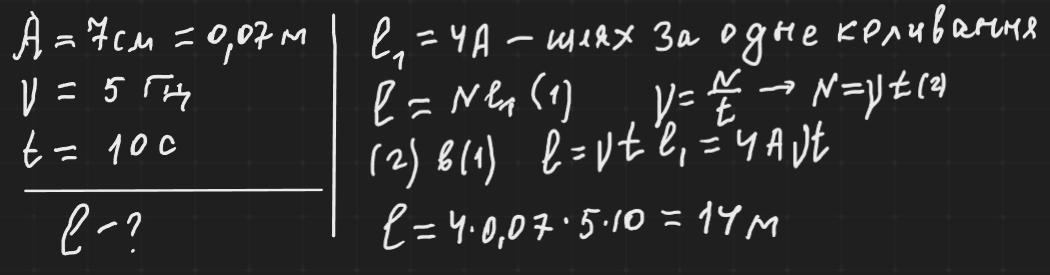 A = 7см = 0,07м
ν = 5 Гц
t = 10 с
ℓ - ?
ℓ₁ = 4A – шлях за одне коливання
ℓ = Nℓ₁ (1) ν = N/t → N = νt (2)
(2) в (1) ℓ = νt ℓ₁ = 4Aνt
ℓ = 4·0,07·5·10 = 14м